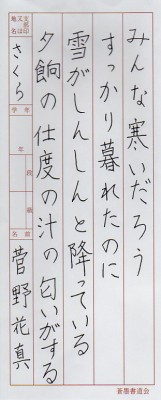 みんな寒いだろう
すっかり暮れたのに
雪がしんしんと降っている
夕餉の仕度の汁の匂いがする
支部印又は地区名
さくら
学年
段級
姓名
菅野花真
蒼墨書道会